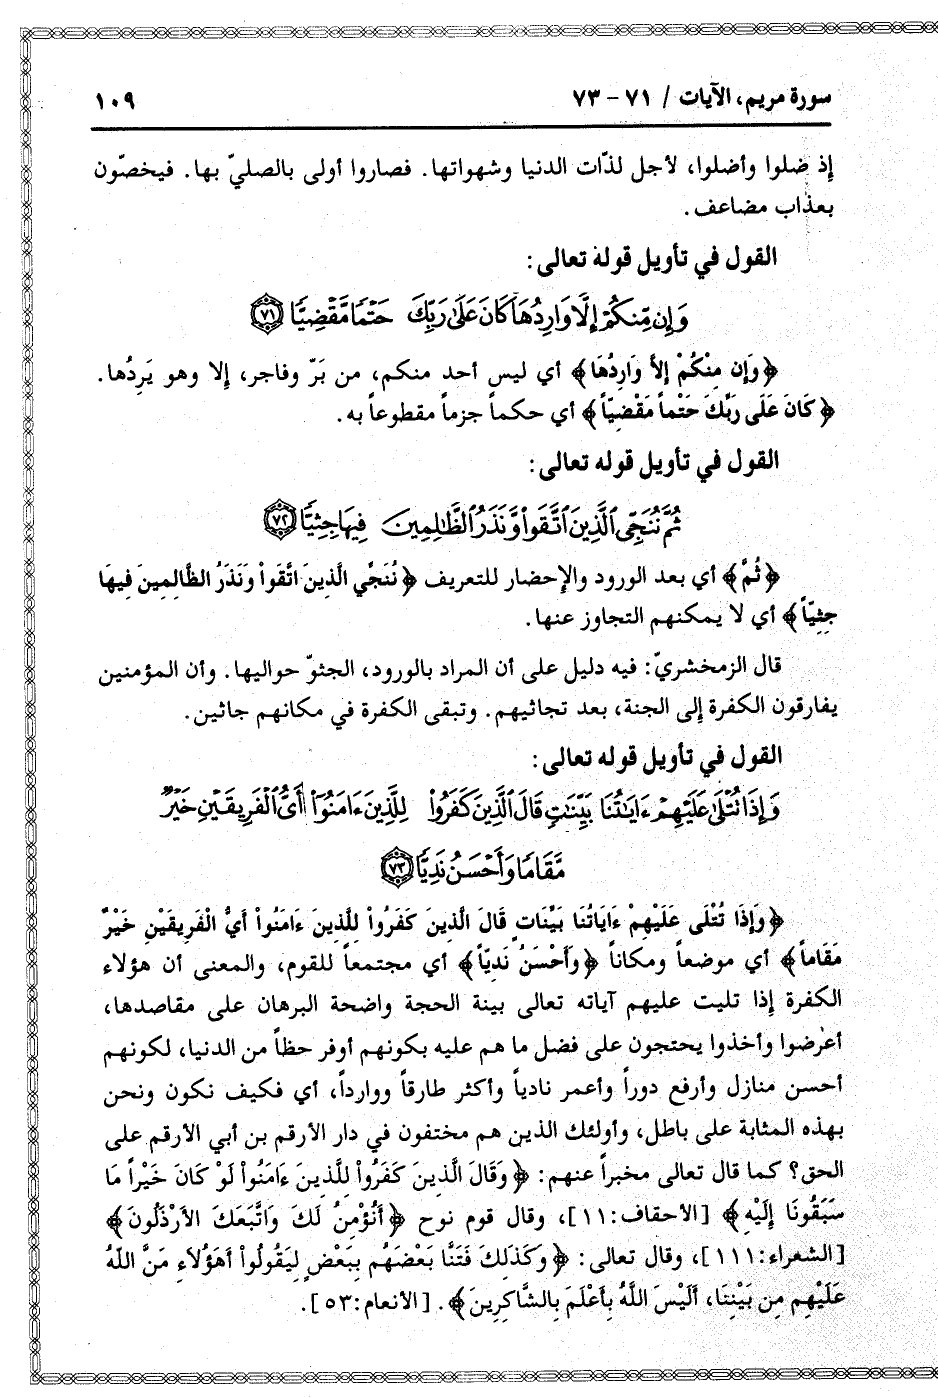 سورة مريم، الآيات / ٧١ - ٧٣
١٠٩
إذ ضلوا وأضلوا، لأجل لذّات الدنيا وشهواتها. فصاروا أولى بالصليّ بها. فيخصّون
بعذاب مضاعف.
القول في تأويل قوله تعالى:
وَإِن مِّنكُمْ إِلَّا وَارِدُهَا كَانَ عَلَىٰ رَبِّكَ حَتْمًا مَّقْضِيًّا ٧١
﴿وَإِن مِنْكُمْ إلاَّ وَارِدُهَا﴾ أي ليس أحد منكم، من بَرّ وفاجر، إلا وهو يَرِدُها.
﴿كَانَ عَلَى رَبِّكَ حَتْماً مَقْضِيّاً﴾ أي حكماً جزماً مقطوعاً به.
القول في تأويل قوله تعالى:
ثُمَّ نُنَجِّى ٱلَّذِينَ ٱتَّقَوا۟ وَّنَذَرُ ٱلظَّـٰلِمِينَ فِيهَا جِثِيًّا ٧٢
﴿ثُمَّ﴾ أي بعد الورود والإحضار للتعريف ﴿نُنَجِّي الَّذِينَ اتَّقَواْ وَنَذَرُ الظَّالِمِينَ فِيهَا
جِثِيّاً﴾ أي لا يمكنهم التجاوز عنها.
قال الزمخشريّ: فيه دليل على أن المراد بالورود، الجثوّ حواليها. وأن المؤمنين
يفارقون الكفرة إلى الجنة، بعد تجاثيهم. وتبقى الكفرة في مكانهم جاثين.
القول في تأويل قوله تعالى:
وَإِذَا تُتْلَىٰ عَلَيْهِمْ ءَايَـٰتُنَا بَيِّنَـٰتٍ قَالَ ٱلَّذِينَ كَفَرُوا۟ لِلَّذِينَ ءَامَنُوٓا۟ أَىُّ ٱلْفَرِيقَيْنِ خَيْرٌ
مَّقَامًا وَأَحْسَنُ نَدِيًّا ٧٣
﴿وَإِذَا تُتْلَى عَلَيْهِمْ ءَايَاتُنَا بَيِّنَاتٍ قَالَ الَّذِينَ كَفَرُواْ لِلَّذِينَ ءَامَنُواْ أَيُّ الْفَرِيقَيْنِ خَيْرٌ
مَقَاماً﴾ أي موضعاً ومكاناً ﴿وأَحْسَنُ نَدِيّاً﴾ أي مجتمعاً للقوم، والمعنى أن هؤلاء
الكفرة إذا تليت عليهم آياته تعالى بينة الحجة واضحة البرهان على مقاصدها،
أعرضوا وأخذوا يحتجون على فضل ما هم عليه بكونهم أوفر حظاً من الدنيا، لكونهم
أحسن منازل وأرفع دوراً وأعمر نادياً وأكثر طارقاً ووارداً، أي فكيف نكون ونحن
بهذه المثابة على باطل، وأولئك الذين هم مختفون في دار الأرقم بن أبي الأرقم على
الحق؟ كما قال تعالى مخبراً عنهم: ﴿وَقَالَ الَّذِينَ كَفَرُواْ لِلَّذِينَ ءَامَنُواْ لَوْ كَانَ خَيْراً مَا
سَبَقُونَا إِلَيْهِ﴾ [الأحقاف:١١]، وقال قوم نوح ﴿أَنُؤْمِنُ لَكَ وَاتَّبَعَكَ الأَرْذَلُونَ﴾
[الشعراء:١١١]، وقال تعالى: ﴿وَكَذَلِكَ فَتَنَّا بَعْضَهُم بِبَعْضٍ لِيَقُولُواْ أَهَؤُلاَءِ مَنَّ اللَّهُ
عَلَيْهِم مِن بَيْنِنَا، أَلَيْسَ اللَّهُ بِأَعْلَمَ بِالشَّاكِرِينَ﴾. [الأنعام:٥٣].